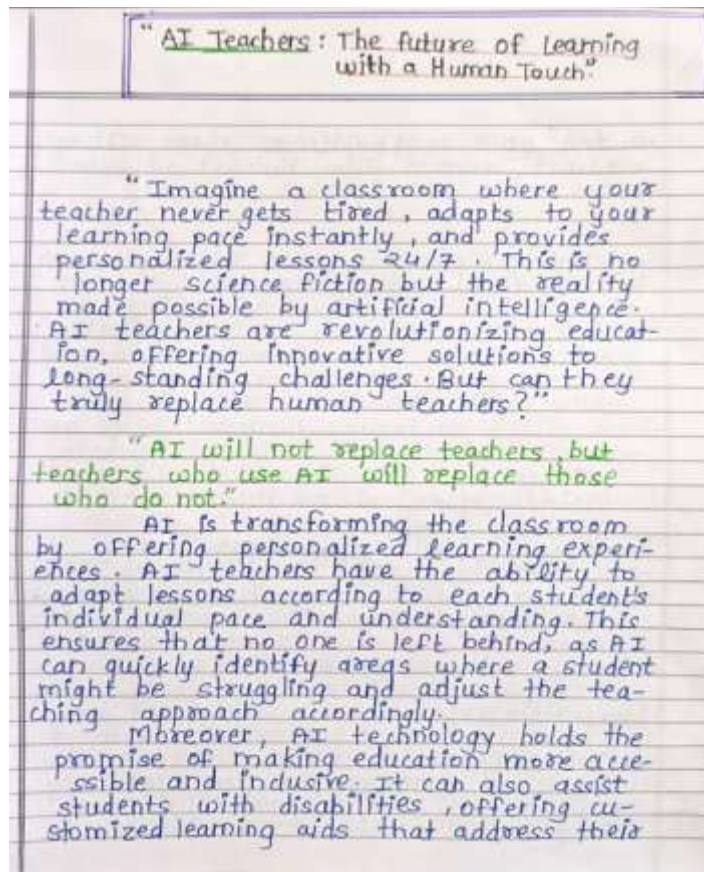 "AI Teachers: The future of Learning
with a Human Touch"
"Imagine a classroom where your
teacher never gets tired, adapts to your
learning pace instantly, and provides
personalized lessons 24/7. This is no
longer science fiction but the reality
made possible by artificial intelligence.
AI teachers are revolutionizing educat-
ion, offering innovative solutions to
long-standing challenges. But can they
truly replace human teachers?"
"AI will not replace teachers, but
teachers who use AI will replace those
who do not."
AI is transforming the classroom
by offering personalized learning experi-
ences. AI teachers have the ability to
adapt lessons according to each student's
individual pace and understanding. This
ensures that no one is left behind, as AI
can quickly identify areas where a student
might be struggling and adjust the tea-
ching approach accordingly.
Moreover, AI technology holds the
promise of making education more acce-
ssible and inclusive. It can also assist
students with disabilities, offering cu-
stomized learning aids that address their